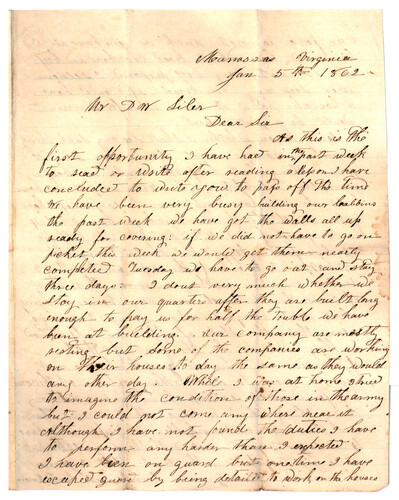 Manassas Virginia
Jan 5th 1862
Mr D W Siler
Dear Sir
As this is the
first opportunity I have had in the past week
to read or write after reading a lesson I have
concluded to write you to pass off the time
We have been very busy building our cabbins
the past week we have got the walls all up
ready for covering: if we did not have to go on
picket this week we would get them nearly
completed Tuesday we have to go out and stay
three days. I dout very much whether we
stay in our quarters after they are built long
enough to pay us for half the truble we have
been at building. Our company are mostly
resting but some of the companies are working
on their houses to day the same as they would
any other day. While I was at home I tried
to imagine the condition of those in the army
but I could not come any where near it
Although I have not found the duties I have
to perform any harder than I expected
I have been on guard but one time I have
escaped guard by being detailed to work on the houses